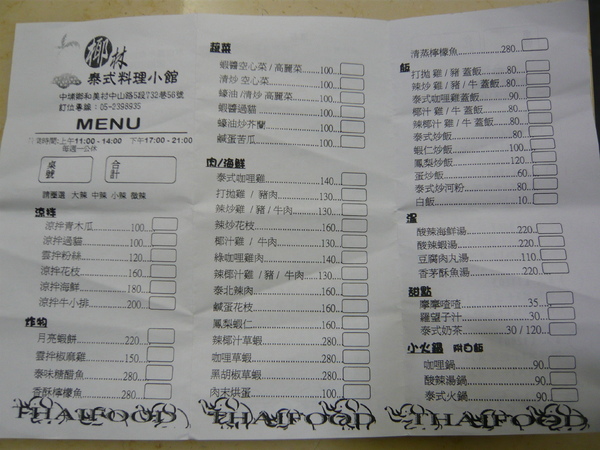 椰林
泰式料理小館
中埔鄉和美村中山路5段732巷56號
訂位專線：05-2398935
MENU
上午11:00 - 14:00 下午17:00 - 21:00
每週一公休
桌號
合計
請圈選 大辣 中辣 小辣 微辣
涼拌
涼拌青木瓜 100
涼拌過貓 100
雲拌粉絲 120
涼拌花枝 160
涼拌海鮮 180
涼拌牛小排 200
炸物
月亮蝦餅 220
雲拌椒麻雞 150
泰味糖醋魚 280
香酥檸檬魚 280
THAIFOOD
蔬菜
蝦醬空心菜/高麗菜 100
清炒 空心菜 100
蠔油/清炒 高麗菜 100
蝦醬過貓 100
蠔油炒芥蘭 100
鹹蛋苦瓜 100
肉/海鮮
泰式咖哩雞 130
打拋雞 / 豬肉 130
辣炒雞 / 豬/牛肉 130
辣炒花枝 160
椰汁雞 / 牛肉 130
綠咖哩雞肉 140
辣椰汁雞 / 豬 / 牛肉 130
泰北辣肉 140
鹹蛋花枝 160
鳳梨蝦仁 160
辣椰汁草蝦 280
咖哩草蝦 280
黑胡椒草蝦 280
肉末烘蛋 100
THAIFOOD
清蒸檸檬魚 280
飯
打拋 雞 / 豬 蓋飯 80
辣炒 雞 / 豬 / 牛 蓋飯 80
泰式咖哩雞蓋飯 90
椰汁 雞 / 牛 蓋飯 80
辣椰汁 雞 / 牛 蓋飯 80
泰式炒飯 80
蝦仁炒飯 100
鳳梨炒飯 120
蛋炒飯 60
泰式炒河粉 80
白飯 10
湯
酸辣海鮮湯 220
酸辣蝦湯 220
豆腐肉丸湯 110
香茅酥魚湯 220
甜點
摩摩喳喳 35
羅望子汁 30
泰式奶茶 30 / 120
小火鍋 附白飯
咖哩鍋 90
酸辣湯鍋 90
泰式火鍋 90
THAIFOOD